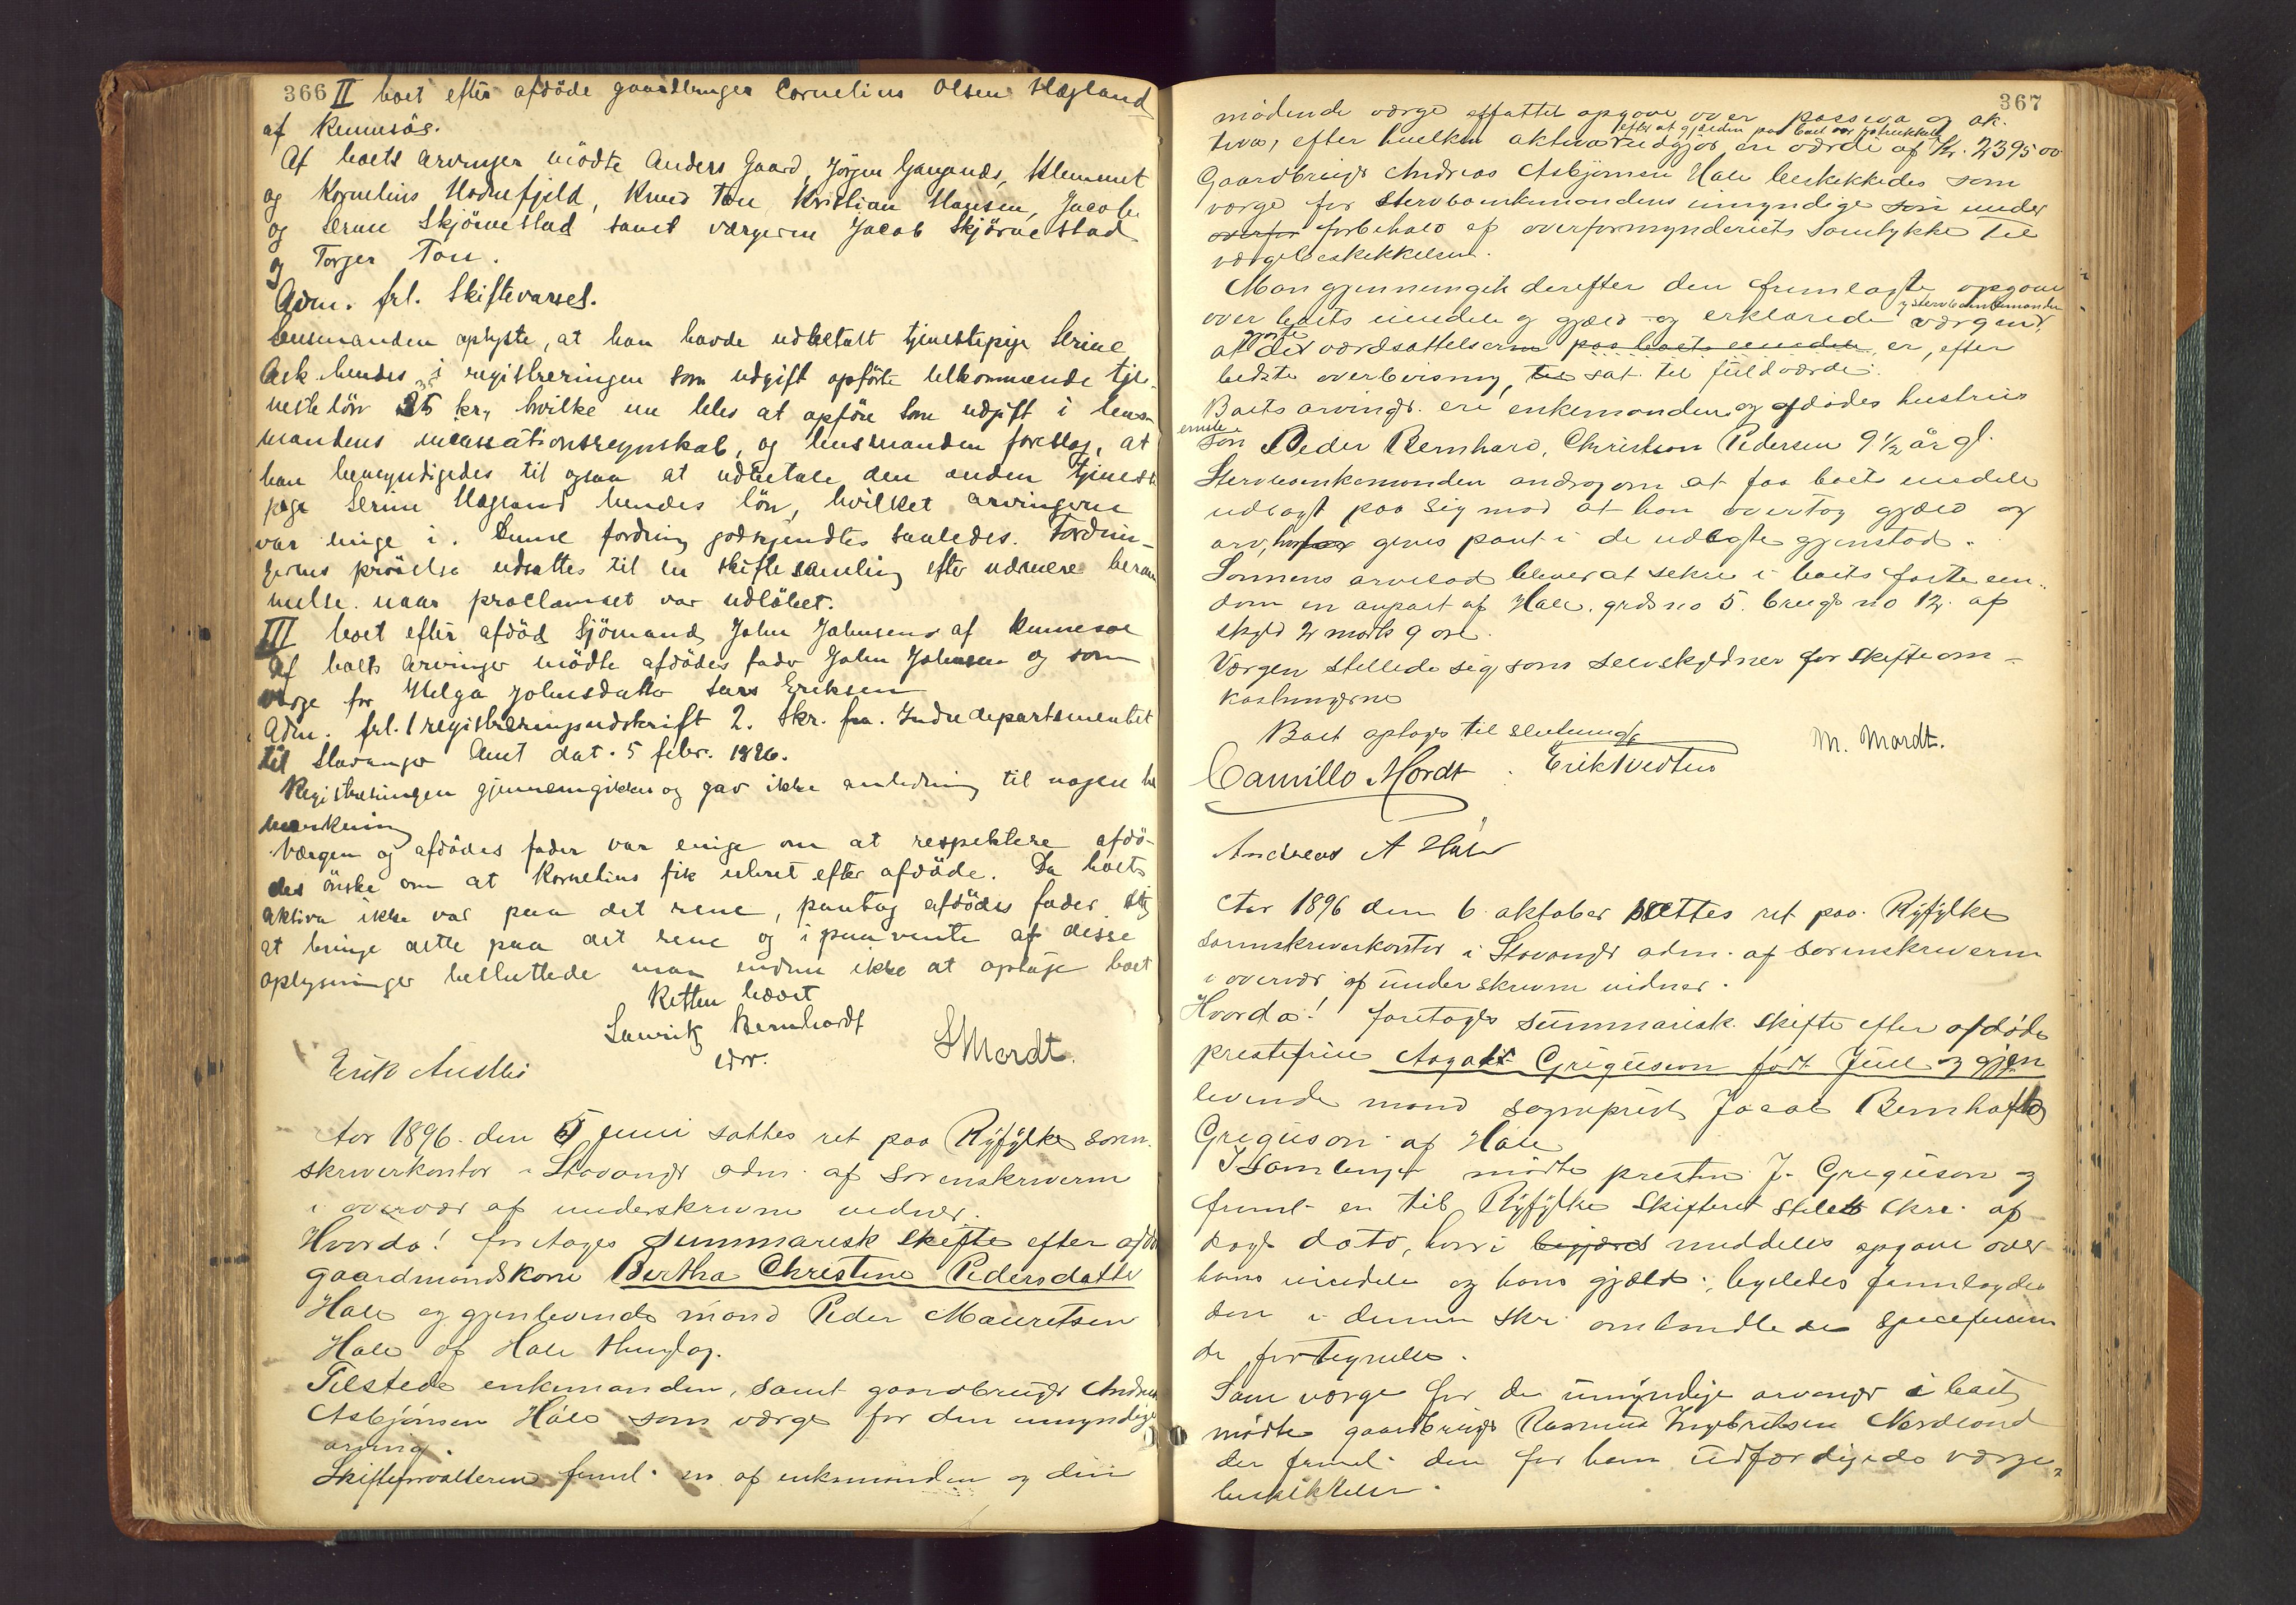 366 II boet efter afdöde gaardbruger Cornelius Olsen Hægland
af Rennesöe.
Af boets arvinger mödte Anders Gaard, Jörgen Gangenæs, Klemmet
og Kornelius Hodnefjeld, Knud Tou Kristian Hansen, Jacob
og Serine Skjörvestad samt værgerne Jacob Skjörvestad
og Torger Tou.
Adm. frl. Skiftevarsel.
Lensmanden oplyste, at han havde udbetalt tjenestepige Serine
Ask hendes i registreringen som udgift opförte tilkommende tje-
nestelön 25 kr, hvilke nu bles at opföre som udgift i lens-
mandens incassationsregnskab, og lensmanden foreslog, at
han bemyndigedes til ogsaa at udbetale den anden tjeneste
pige Serine Hægland hendes lön, hvilket arvingerne
var enige i. Denne fordring godkjendtes saaledes. Fordrin-
gernes prövelse udsattes til en skiftesamling efter nærmere beram
melse naar proclamaet var udlöbet.
III boet efter afdöd Sjömand John Johnsen af Rennesöe
Af boets arvinger mödte afdödes fader John Johnsen og som
værge for Helga Johnsdatter Lars Eriksen
Adm. frl. 1 registreringsudskrift 2. Skr. fra Indredepartementet
til Stavanger Amt dat. 5 febr. 1896.
Registreringen gjennemgikkes og gav ikke anledning til nogen be
mærkning
Værgen og afdödes fader var enige om at respektere afdö-
des önske om at Kornelius fik uhret efter afdöde. Da boets
aktiva ikke var paa det rene, paatog afdödes fader sig
at bringe dette paa det rene og i paavente af disse
oplysninger besluttede man endnu ikke at optage boet
Retten hævet
Lauritz Bernhardt
Erik Austbö
edv.
S Mordt.
Aar 1896 den 5 juni sattes ret paa Ryfylke soren-
skriverkontor i Stavanger adm. af sorenskriveren
i overvær af underskrevne vidner.
Hvorda! foretoges summarisk skifte efter afdöde
gaardmandskone Bertha Christine Pedersdatter
Hale og gjenlevende mand Peder Mauretsen
Hale af Hale thinglag.
Tilstede enkemanden, samt gaardbruger Andreas
Asbjörnsen Hale som værge for den umyndige
arving.
Skifteforvalteren freml. en af enkemanden og den
367
mödende værge affattet opgave over passiva og ak-
efter at gjælden paa boet var fratrukket
tiva, efter hvilken aktiva udgjör en værdi af Kr. 2395 00
Gaardbruger Andreas Asbjörnsen Hale beskikkedes som
værge for Stervboenkemandens umyndige sön under
overfor forbehold af overformynderiets samtykke til
værgebeskikkelsen.
Man gjennemgik derefter den fremlagte opgave
og stervboenkemanden
over boets eiendele og gjæld og erklærede værgen,
gjorte
at de værdsættelserne paa boets eiendele er, efter
bedste overbevisning, til sat til fuld værdi.
Boets arvinger ere enkemanden og afdödes hustrus
eneste
sön Peder Bernhard, Christian Pedersen 9 1/2 år gl.
Stervboenkemanden androg om at faa boets eiendele
udlagt paa sig mod at han overtog gjæld og
arv, hvorfor gives pant i de udlagte gjenstande.
Sönnens arvelod bliver at sikre i boets faste eien-
dom en anpart af Hale, grds no 5. brugs no 12. af
skyld 2 mark 9 öre.
Værgen stillede sig som selvskyldner for skifteom-
kostningerne
Boet optages til slutning
Camillo Mordt
Erik Tvedten
M. Mordt.
Andreas A Hale
Aar 1896 den 6 oktober sættes ret paa Ryfylke
sorenskriverkontor i Stavanger adm. af sorenskriveren
i overvær af underskrevne vidner.
Hvorda! foretoges summarisk skifte efter afdöde
prestefrue Aagaat Griguson födt Juul og gjen
levende mand sogneprest Jacob Bernhoft
Griguson af Hale
I Samlingen mödte presten J. Griguson og
freml. en til Ryfylke Skifteret stilet skr. af
dags dato, hvori begjæres meddeles opgave over
hans eiendele og hans gjæld; ligeledes fremlagdes
den i denne skr. omhandlede specificeren
de fortegnelse.
Som værge for de umyndige arvinger i boet
mödte gaardbruger Rasmus Ingebretsen Nordland
der freml. den for ham udfærdigede værge-
beskikkelse.